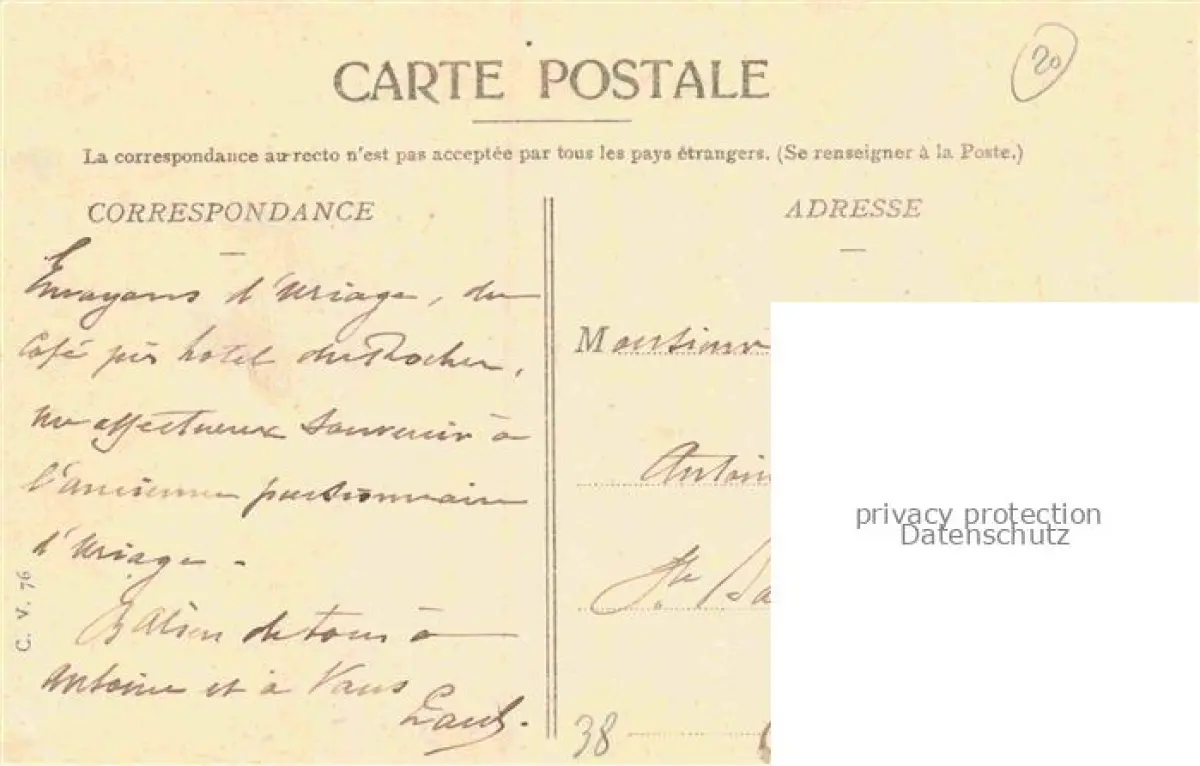 20
CARTE POSTALE
La correspondance au recto n'est pas acceptée par tous les pays étrangers. (Se renseigner à la Poste.)
CORRESPONDANCE
Envoyons d'Uriage, du
Café hotel du Rocher,
un affectueux souvenir à
l'ancienne pensionnaire
d'Uriage.
de tous à
Antoine et à Vous
C. V. 76
ADRESSE
Monsieur
Antoin
Ste
38
privacy protection
Datenschutz